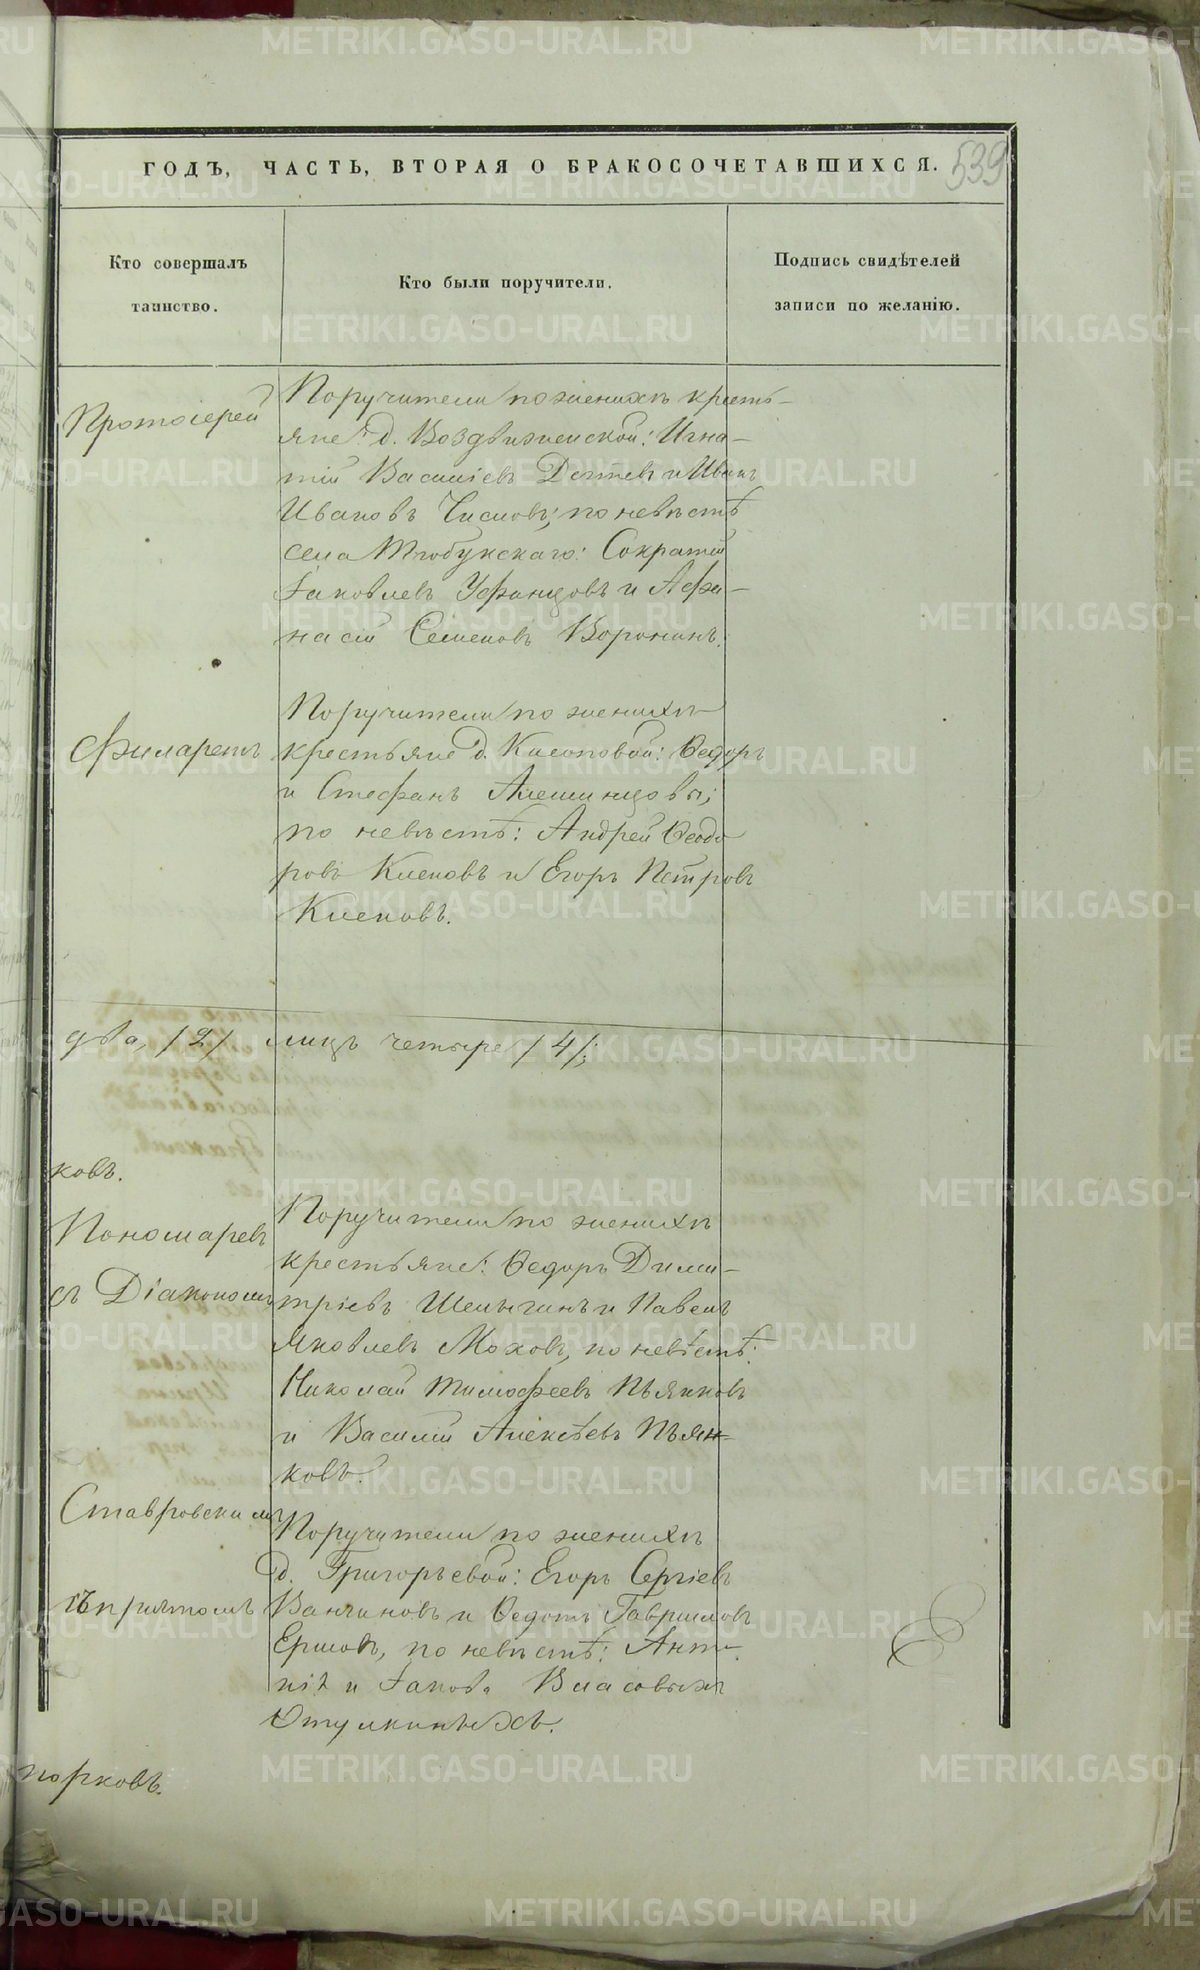 ГОДЪ, ЧАСТЬ, ВТОРАЯ О БРАКОСОЧЕТАВШИХСЯ.
539
Кто совершалъ
таинство.
Кто были поручители.
Подпись свидѣтелей
записи по желанію.
Протоіерей
Поручители по женихѣ кресть-
яне д. Воздвиженской: Игна-
тій Василіевъ и Иванъ
Ивановъ Числовъ; по невѣстѣ
села Тюбукскаго:
Іаковлевъ Уфинцовъ и Афа-
насій Семеновъ Воронинъ.
Филаретъ
Поручители по женихѣ
крестьяне д. Ѳедоръ
и Стефанъ Алешинцовы;
по невѣстѣ: Андрей Ѳеодо
ровъ Клековъ и Егоръ Петровъ
Клековъ.
два, /2/ лицъ четыре /4/;
ковъ.
Пономаревъ
съ Діакономъ
Поручители по женихѣ
крестьяне: Ѳедоръ Дими-
тріевъ и Павелъ
Яковлевъ Моховъ, по невѣстѣ:
Николай Тимофеевъ Пьянковъ
и Василій Алексѣевъ Пьян-
ковъ.
Ставровскимъ
съ причтомъ
Поручители по женихѣ
д. Григорьевой: Егоръ Сергіевъ
Ванчиновъ и Ѳедотъ Гавриловъ
Ершовъ, по невѣстѣ:
и Іаковъ Власовыхъ
порковъ.
METRIKI.GASO-URAL.RU